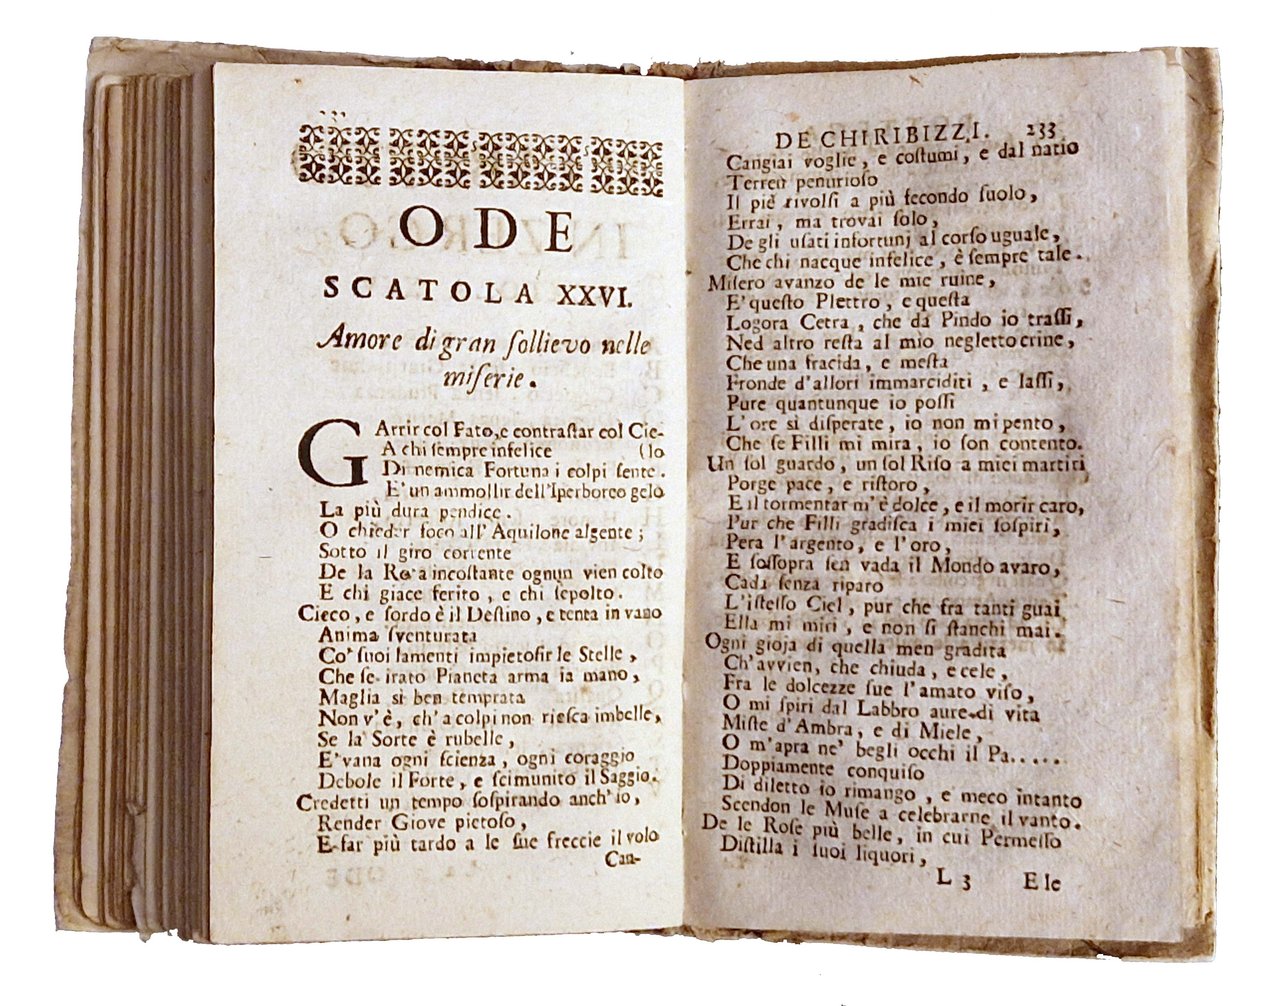 ODE
SCATOLA XXVI.
Amore di gran ſollievo nelle
miſerie.
GArrir col Fato, e contraſtar col Cie-
A chi ſempre infelice (lo
Di nemica Fortuna i colpi ſente.
E' un ammollir dell'Iperboreo gelo
La più dura pendice.
O chieder foco all' Aquilone algente;
Sotto il giro corrente
De la Rota incoſtante ognun vien colto
E chi giace ferito, e chi ſepolto.
Cieco, e ſordo è il Deſtino, e tenta in vano
Anima ſventurata
Co' ſuoi lamenti impietoſir le Stelle,
Che ſe irato Pianeta arma la mano,
Maglia sì ben temprata
Non v'è, ch' a colpi non rieſca imbelle,
Se la Sorte è rubelle,
E' vana ogni ſcienza, ogni coraggio
Debole il Forte, e ſcimunito il Saggio.
Credetti un tempo ſoſpirando anch' io,
Render Giove pietoſo,
E far più tardo a le ſue freccie il volo
Can-
DE CHIRIBIZZI. 233
Cangiai voglie, e coſtumi, e dal natio
Terren penurioſo
Il piè rivolſi a più fecondo ſuolo,
Errai, ma trovai ſolo,
De gli uſati infortunj al corſo uguale,
Che chi nacque infelice, è ſempre tale.
Miſero avanzo de le mie ruine,
E' queſto Plettro, e queſta
Logora Cetra, che da Pindo io traſſi,
Ned altro reſta al mio negletto crine,
Che una fracida, e meſta
Fronde d'allori immarciditi, e laſſi,
Pure quantunque io poſſi
L'ore sì diſperate, io non mi pento,
Che ſe Filli mi mira, io ſon contento.
Un ſol guardo, un ſol Riſo a miei martiri
Porge pace, e riſtoro,
E il tormentar m'è dolce, e il morir caro,
Pur che Filli gradiſca i miei ſoſpiri,
Pera l'argento, e l'oro,
E ſoſſopra ſen vada il Mondo avaro,
Cada ſenza riparo
L'iſteſſo Ciel, pur che fra tanti guai
Ella mi miri, e non ſi ſtanchi mai.
Ogni gioja di quella men gradita
Ch'avvien, che chiuda, e cele,
Fra le dolcezze ſue l'amato viſo,
O mi ſpiri dal Labbro aure di vita
Miſte d'Ambra, e di Miele,
O m'apra ne' begli occhi il Pa.....
Doppiamente conquiſo
Di diletto io rimango, e meco intanto
Scendon le Muſe a celebrarne il vanto.
De le Roſe più belle, in cui Permeſſo
Diſtilla i ſuoi liquori,
L 3 E le